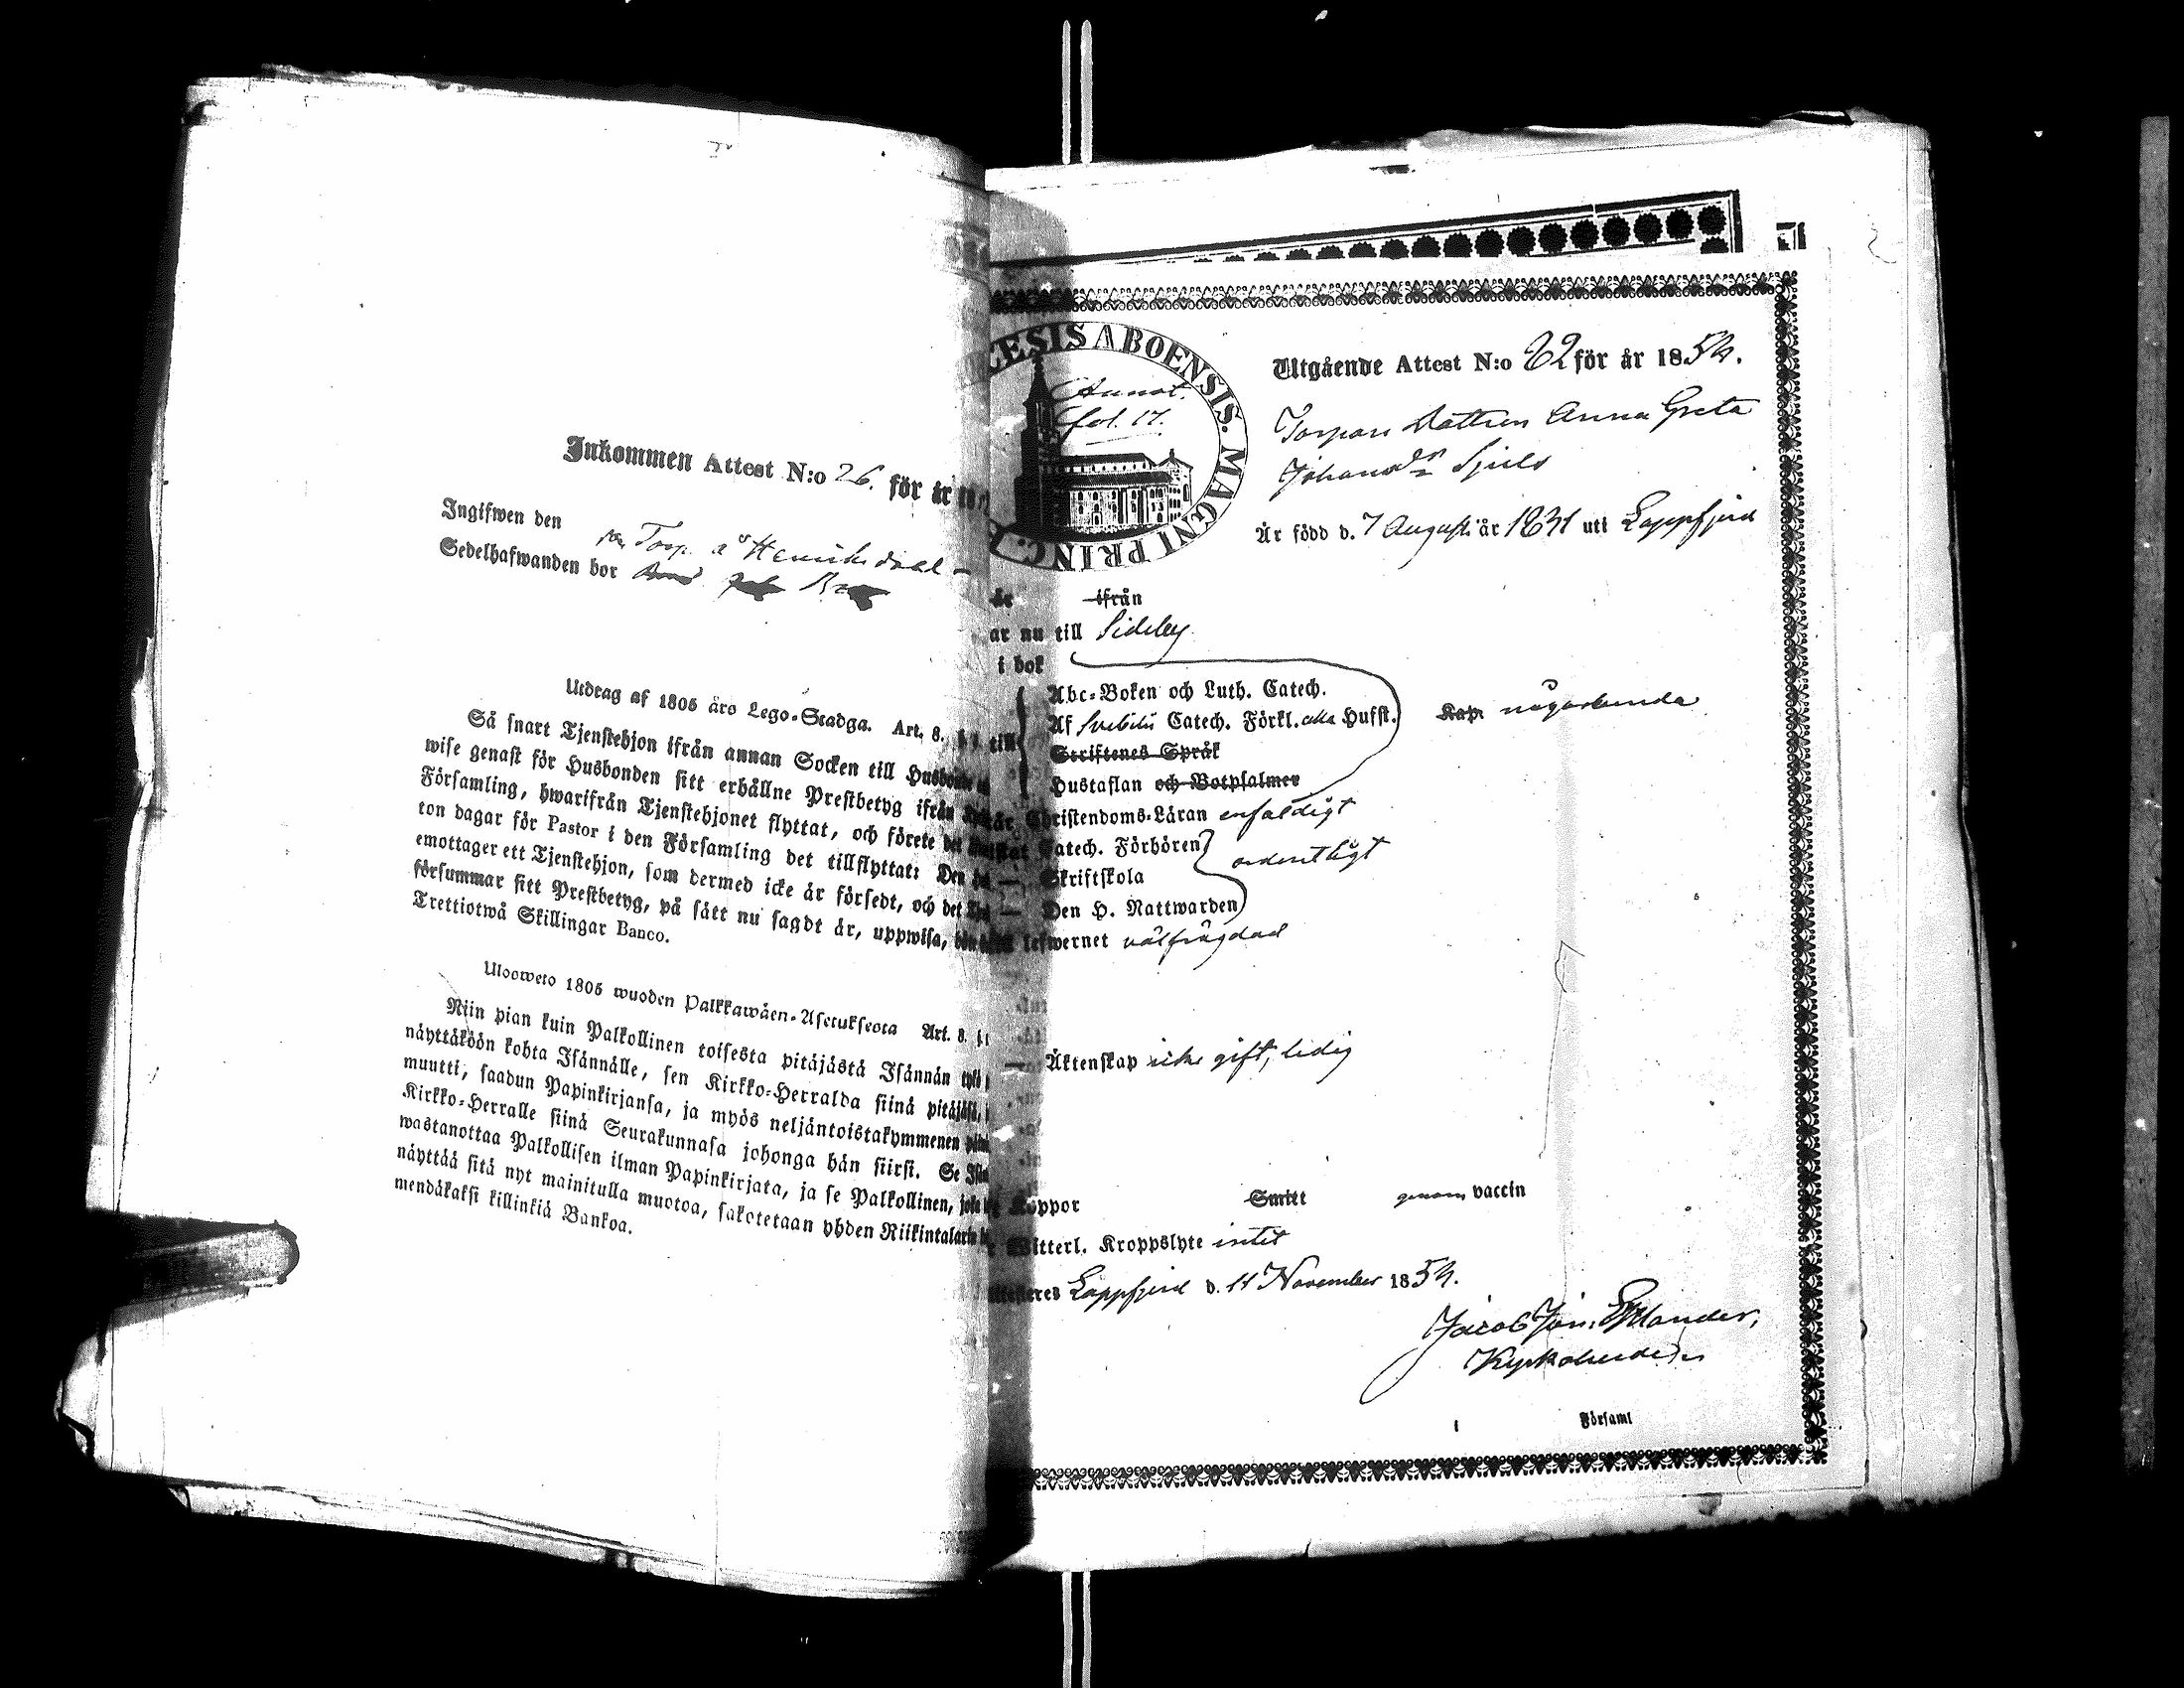 Inkommen Attest N:o 26. för år 18
Ingifwen den
på Torp. å Henriksdahl
Sedelhafwanden bor
Utdrag af 1805 års Lego-Stadga. Art. 8.
Så snart Tjenstehjon ifrån annan Socken till Husbonde
wise genast för Husbonden sitt erhållne Prestbetyg ifrån
Församling, hwarifrån Tjenstehjonet flyttat, och förete det
ton dagar för Pastor i den Församling det tillflyttat: Den
emottager ett Tjenstehjon, som dermed icke är försedt, och det
försummar sitt Prestbetyg, på sätt nu sagdt är, uppwisa,
Trettiotwå Skillingar Banco.
Uloosweto 1805 wuoden Palkkawäen-Asetuksesta Art. 8.
Niin pian kuin Palkollinen toisesta pitäjästä Isännän tykö
näyttäköön kohta Isännälle, sen Kirkko-Herralda siinä pitäjäsä,
muutti, saadun Papinkirjansa, ja myös neljäntoistakymmenen
Kirkko-Herralle siinä Seurakunnasa johonga hän siirsi. Se
wastanottaa Palkollisen ilman Papinkirjata, ja se Palkollinen, joka
näyttää sitä nyt mainitulla muotoa, sakotetaan yhden Riikintalarin
mendäkaksi killinkiä Bankoa.
CESIS ABOENSIS. MAGNI PRINC.
Annot.
fol. 17.
Utgående Attest N:o 62 för år 1854.
Torpare Dottren Anna Greta
Johansdr Sjüls
Är född d. 7 August. år 1831 uti Lappfjerd
är ifrån
ar nu till Sideby
i bok
Abc-Boken och Luth. Catech.
Af Svebilii Catech. Förkl. Husst. Kap. någorlunda
Skriftenes Språk
Hustaflan och Botpsalmer
Christendoms-Läran enfaldigt
Catech. Förhören
ordentligt
Skriftskola
Den H. Nattwarden
lefwernet välfrägdad
Äktenskap icke gift, ledig
Koppor Smitt genom vaccin
Witterl. Kroppslyte intet
Lappfjerd d. 11 November 1854.
Jacob Joh.
Kyrkoherde
i Församl